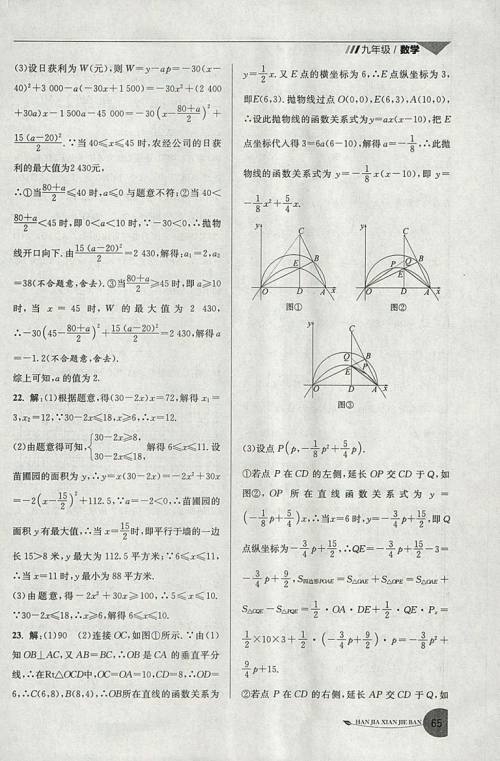 九年级/数学
(3)设日获利为W(元),则W=y-ap=-30(x-
40)²+3 000-a(-30x+1 500)=-30x²+(2 400
+30a)x-1 500a-45 000=-30(x-\frac{80+a}{2})²+
\frac{15(a-20)²}{2}.∵当40≤x≤45时,农经公司的日获
利的最大值为2 430元,
∴①当\frac{80+a}{2}≤40时,a≤0与题意不符;②当40<
\frac{80+a}{2}<45时,即0<a<10时,∵-30<0,∴抛物
线开口向下.由\frac{15(a-20)²}{2}=2 430,解得:a₁=2,a₂
=38(不合题意,舍去).③当\frac{80+a}{2}≥45时,即a≥10
时,当x=45时,W的最大值为2 430,
∴-30(45-\frac{80+a}{2})²+\frac{15(a-20)²}{2}=2 430,解得a
=-1.2(不合题意,舍去).
综上可知,a的值为2.
22.解:(1)根据题意,得(30-2x)x=72,解得x₁=
3,x₂=12,∵30-2x≤18,x≥6,∴x=12.
(2)由题意得可知,{30-2x≥8, 30-2x≤18, 解得6≤x≤11.设
苗圃园的面积为y,∴y=x(30-2x)=-2x²+30x
=-2(x-\frac{15}{2})²+112.5,∵a=-2<0,∴苗圃园的
面积y有最大值,∴当x=\frac{15}{2}时,即平行于墙的一边
长15>8米,y最大为112.5平方米;∵6≤x≤11,
∴当x=11时,y最小为88平方米.
(3)由题意得-2x²+30x≥100,∴5≤x≤10.
∵30-2x≤18,∴x的取值范围是6≤x≤10.
23.解:(1)90 (2)连接OC,如图①所示.∵由(1)
知OB⊥AC,又AB=BC,∴OB是CA的垂直平分
线,∴在Rt△OCD中,OC=OA=10,CD=8,∴OD=
6,∴C(6,8),B(8,4),∴OB所在直线的函数关系为
y=\frac{1}{2}x.又E点的横坐标为6,∴E点纵坐标为3,
即E(6,3).抛物线过点O(0,0),E(6,3),A(10,0),
∴设此抛物线的函数关系式为y=ax(x-10),把E
点坐标代入得3=6a(6-10),解得a=-\frac{1}{8},∴此抛
物线的函数关系式为y=-\frac{1}{8}x(x-10),即y=
-\frac{1}{8}x²+\frac{5}{4}x.
y C E B O D A x
图①
y C Q B P E O D A x
图②
y C Q B E P O D A x
图③
(3)设点P(p,-\frac{1}{8}p²+\frac{5}{4}p).
①若点P在CD的左侧,延长OP交CD于Q,如
图②,OP所在直线函数关系式为y=
(-\frac{1}{8}p+\frac{5}{4})x,∴当x=6时,y=-\frac{3}{4}p+\frac{15}{2},即Q
点纵坐标为-\frac{3}{4}p+\frac{15}{2},∴QE=-\frac{3}{4}p+\frac{15}{2}-3=
-\frac{3}{4}p+\frac{9}{2},∴S四边形POAE=S△OAE+S△OPE=S△OAE+
S△OQE-S△PQE=\frac{1}{2}·OA·DE+\frac{1}{2}·QE·Pₓ=
\frac{1}{2}×10×3+\frac{1}{2}·(-\frac{3}{4}p+\frac{9}{2})·p=-\frac{3}{8}p²+
\frac{9}{4}p+15.
②若点P在CD的右侧,延长AP交CD于Q,如
HAN JIA XIAN JIE BAN 65